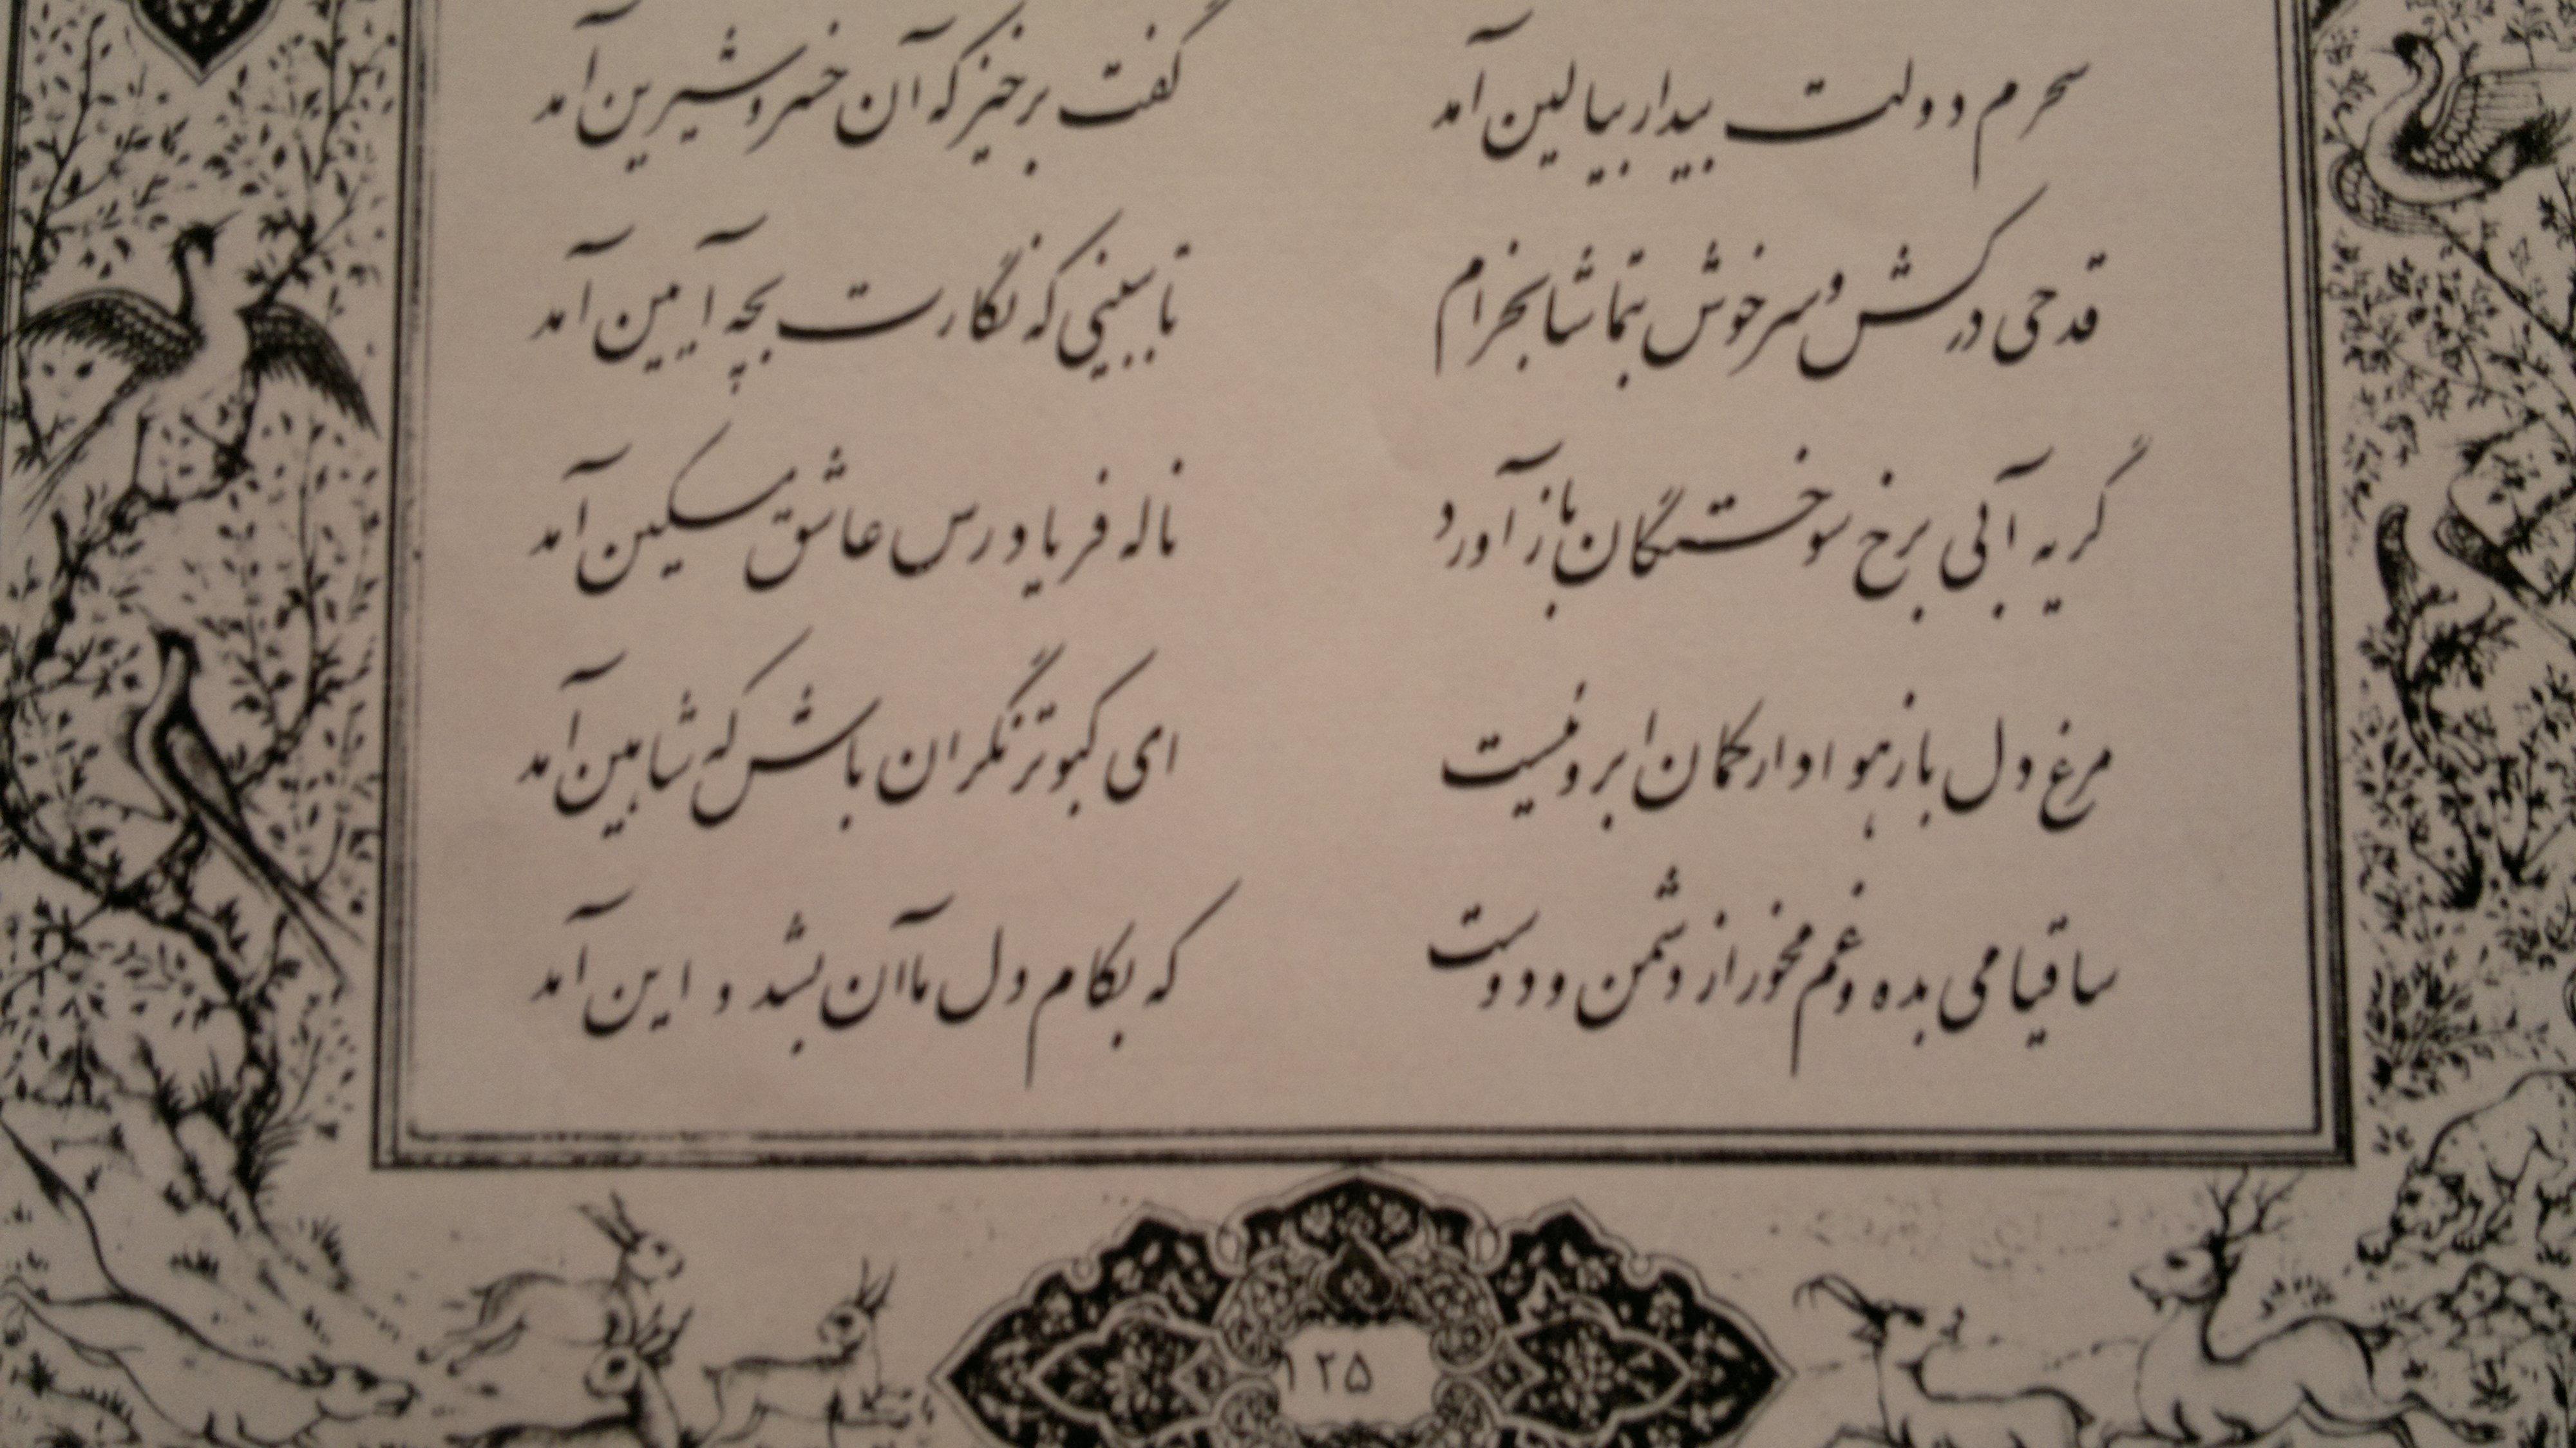 سحرم دولت بیدار ببالین آمد گفت برخیز که آن خسرو شیرین آمد
قدحی درکش و سرخوش بتماشا بخرام تا ببینی که نگارت بچه آیین آمد
گریه آبی برخ سوختگان باز آورد ناله فریادرس عاشق مسکین آمد
مرغ دل باز هوادار کمان ابروئیست ای کبوتر نگران باش که شاهین آمد
ساقیا می بده و غم مخور از دشمن و دوست که بکام دل ما آن بشد و این آمد
۱۲۵